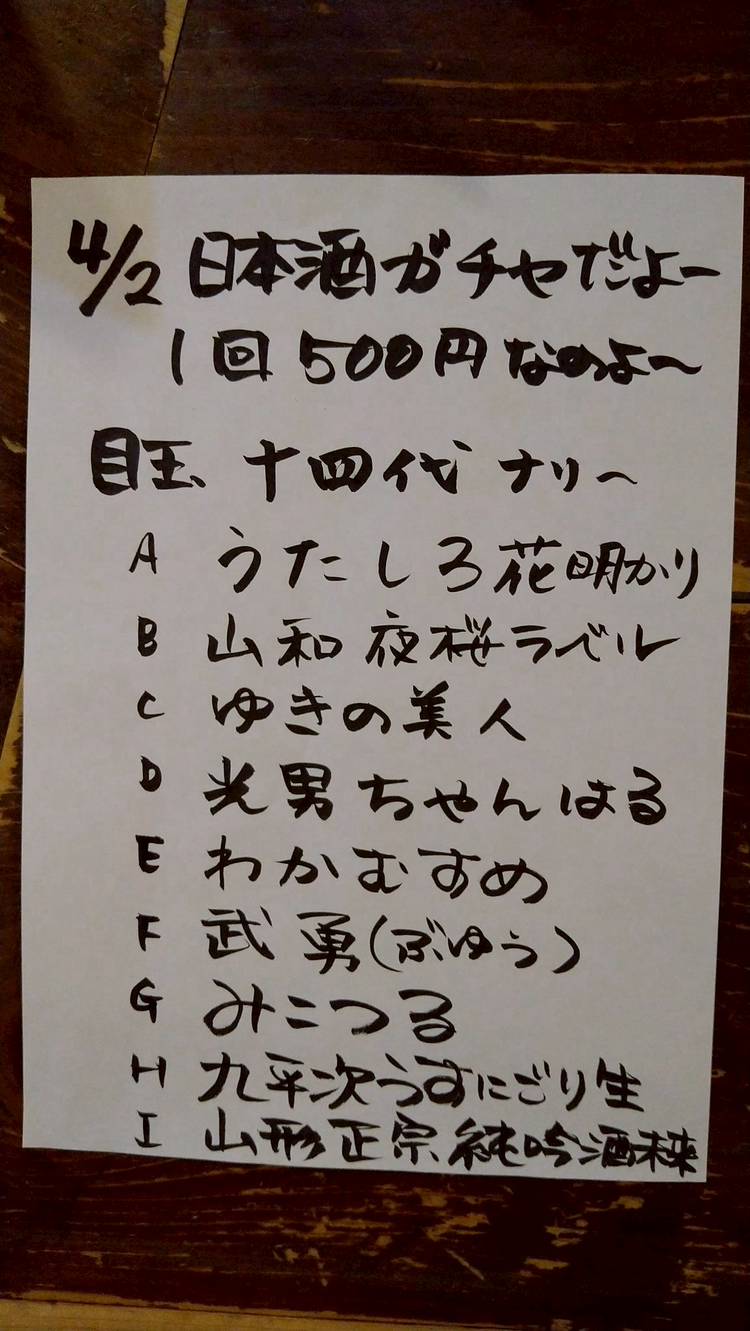 4/2 日本酒ガチャだよー
1回 500円 なのよ〜
目玉 十四代 ナリ〜
A うたしろ花明かり
B 山和 夜桜ラベル
C ゆきの美人
D 光男ちゃんはる
E わかむすめ
F 武勇(ぶゆう)
G みこつる
H 九平次うすにごり生
I 山形正宗純吟酒未来